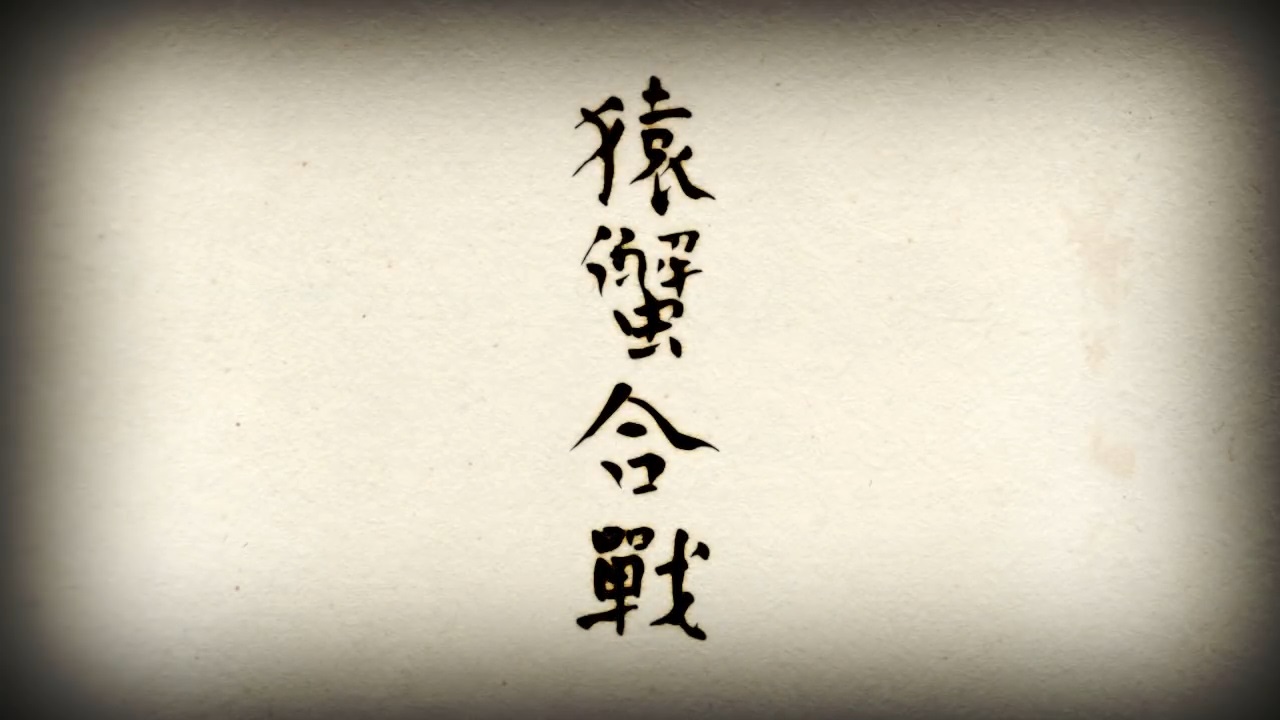 猿蟹合戰